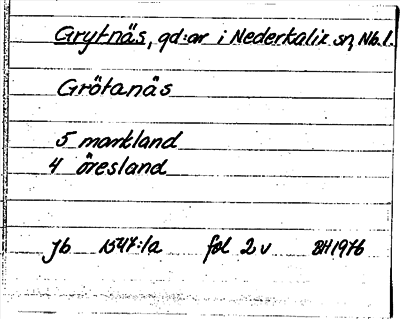 Grytnäs, gd:ar i Nederkalix sn, Nb.l.
Grötanäs
5 markland
4 öresland
Jb 1547:1a fol 2 v BH1976